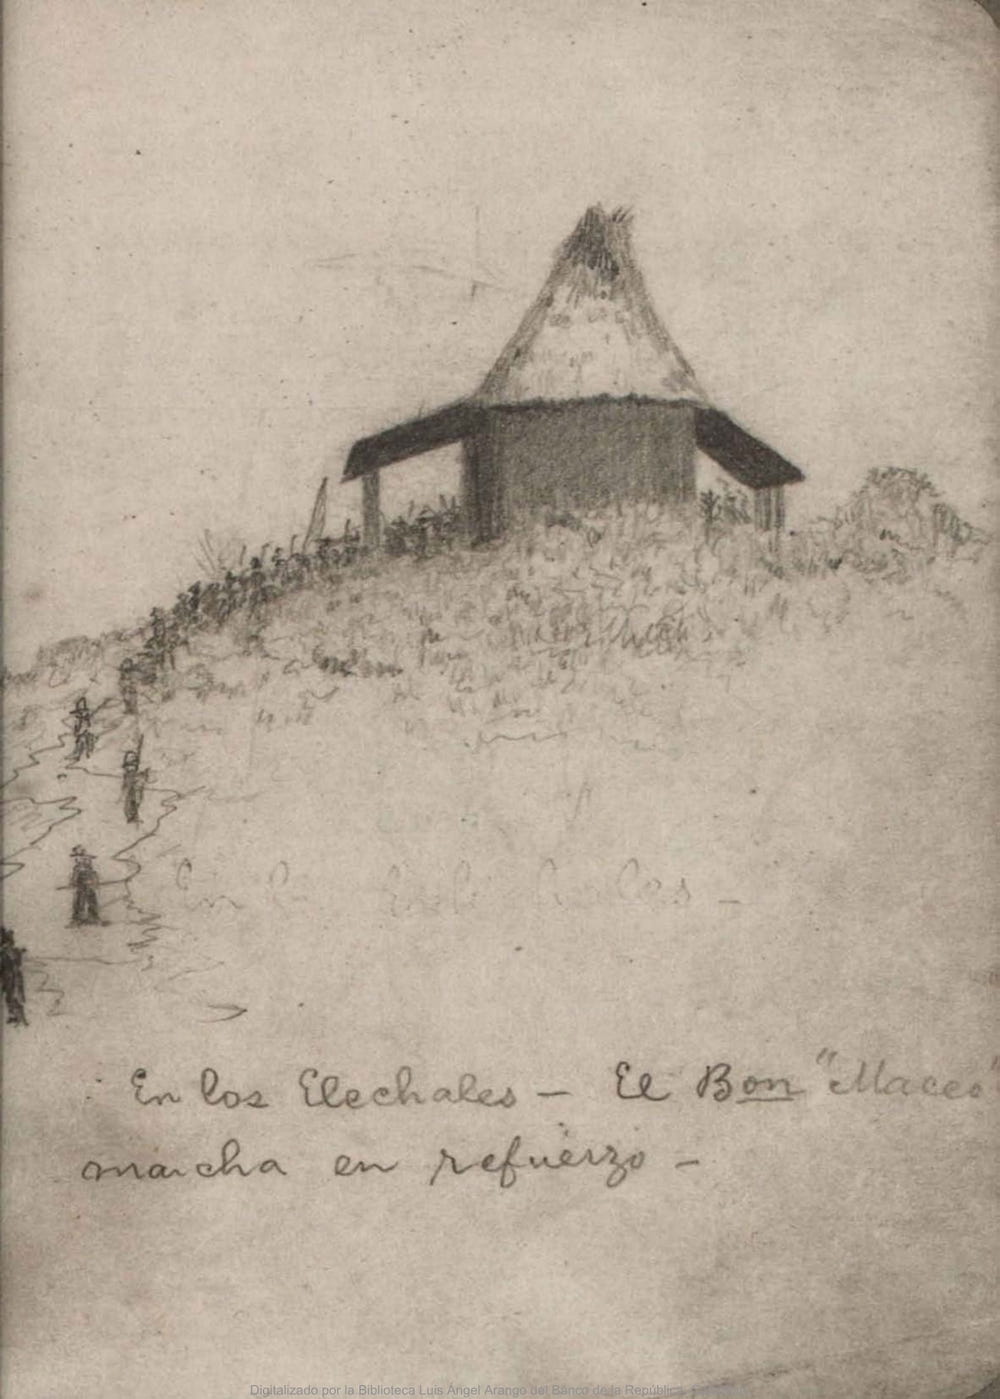 En los Elechales — El Bon "Maceo"
marcha en refuerzo —
Digitalizado por la Biblioteca Luis Ángel Arango del Banco de la República